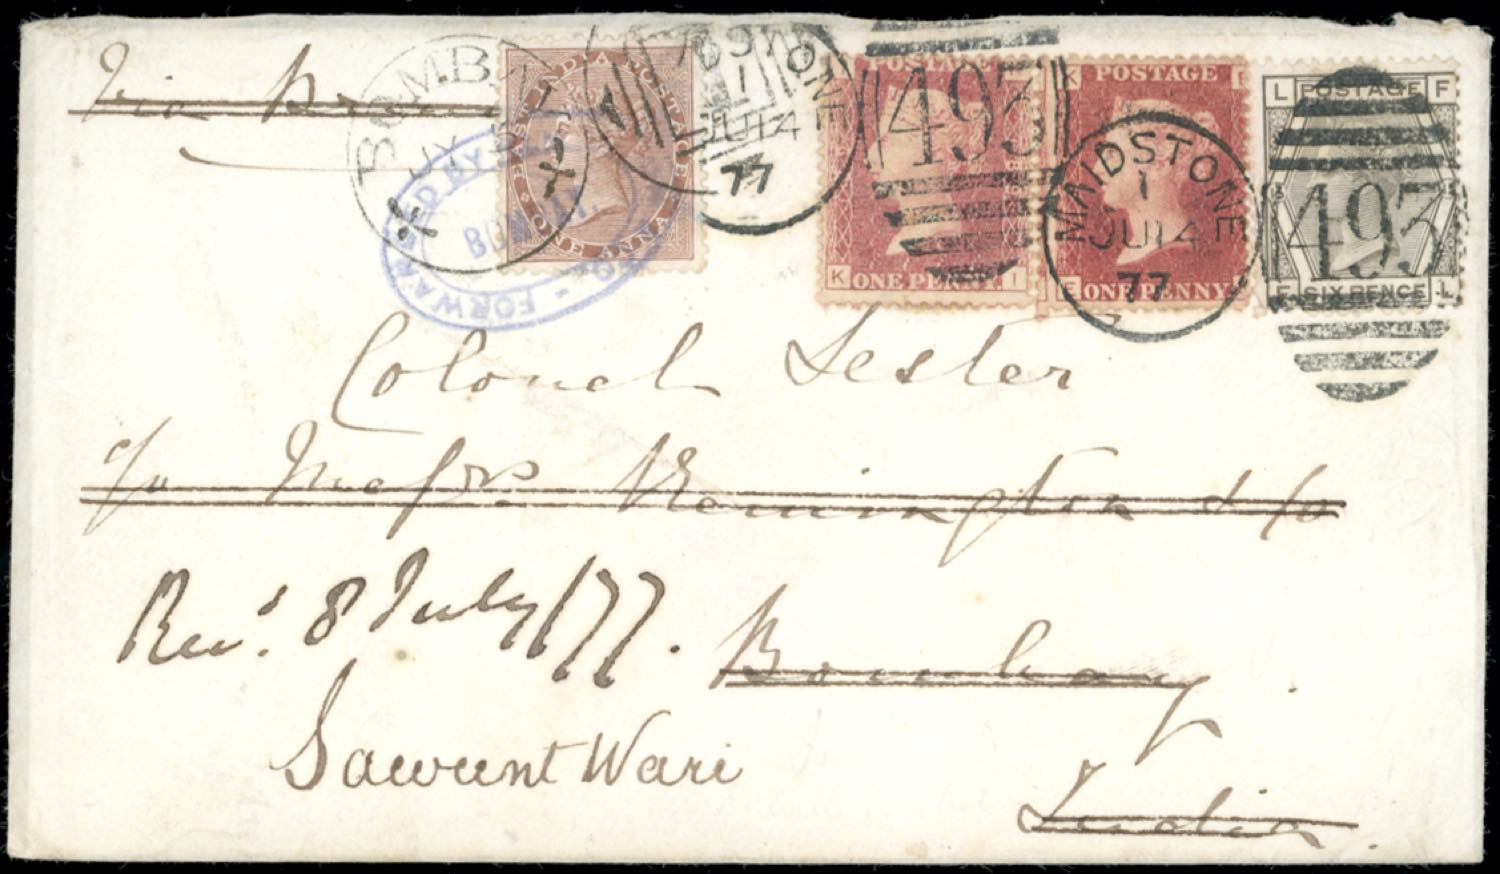 Via
BOMBAY
JY
FORWARDED BY
BOMBAY.
EAST INDIA POSTAGE
ONE ANNA
MAIDSTONE
1
JU 14
77
POSTAGE
493
K ONE PENNY. I
K POSTAGE
E ONE PENNY
MAIDSTONE
1
JU 14
77
L POSTAGE F
493
F SIX PENCE L
Colonel Lester
c/o Messrs Remington & Co
Recd. 8 July/77.
Bombay
Sawunt Wari
India